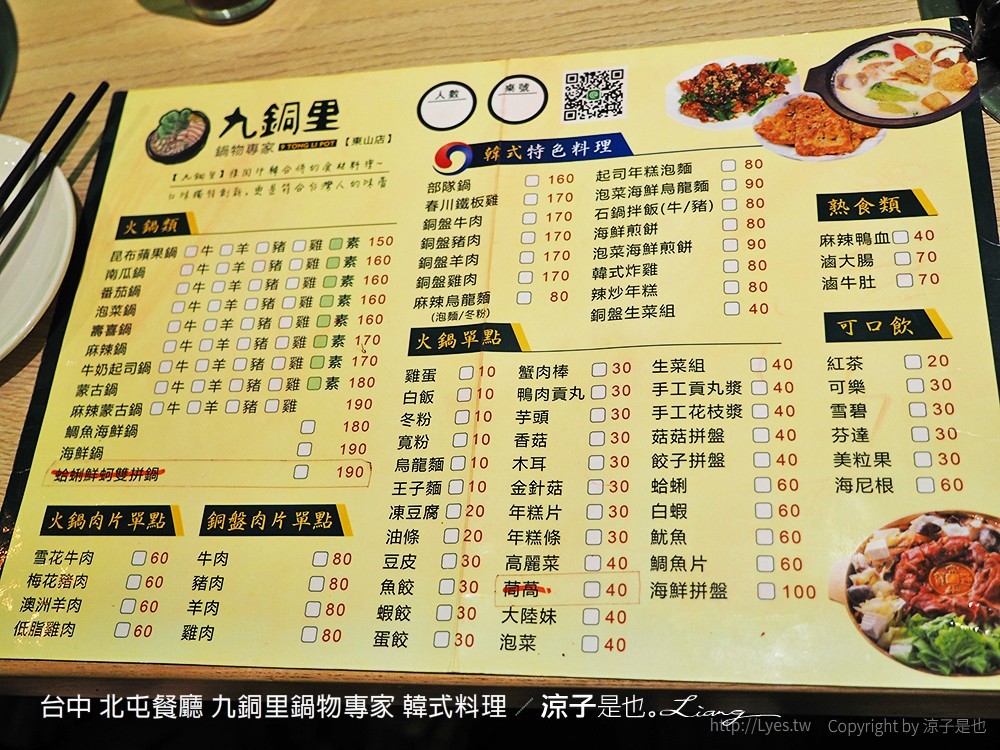 九銅里
鍋物專家 9 TONG LI POT 【東山店】
人數
桌號
火鍋類
昆布蘋果鍋 牛 羊 豬 雞 素 150
南瓜鍋 牛 羊 豬 雞 素 160
番茄鍋 牛 羊 豬 雞 素 160
泡菜鍋 牛 羊 豬 雞 素 160
壽喜鍋 牛 羊 豬 雞 素 160
麻辣鍋 牛 羊 豬 雞 素 170
牛奶起司鍋 牛 羊 豬 雞 素 170
蒙古鍋 牛 羊 豬 雞 素 180
麻辣蒙古鍋 牛 羊 豬 雞 190
鯛魚海鮮鍋 180
海鮮鍋 190
蛤蜊鮮蚵雙拼鍋 190
火鍋肉片單點
雪花牛肉 60
梅花豬肉 60
澳洲羊肉 60
低脂雞肉 60
銅盤肉片單點
牛肉 80
豬肉 80
羊肉 80
雞肉 80
韓式特色料理
部隊鍋 160
春川鐵板雞 170
銅盤牛肉 170
銅盤豬肉 170
銅盤羊肉 170
銅盤雞肉 170
麻辣烏龍麵 80
(泡麵/冬粉)
起司年糕泡麵 80
泡菜海鮮烏龍麵 90
石鍋拌飯(牛/豬) 80
海鮮煎餅 80
泡菜海鮮煎餅 90
韓式炸雞 80
辣炒年糕 80
銅盤生菜組 40
火鍋單點
雞蛋 10
白飯 10
冬粉 10
寬粉 10
烏龍麵 10
王子麵 10
凍豆腐 20
油條 20
豆皮 30
魚餃 30
蝦餃 30
蛋餃 30
蟹肉棒 30
鴨肉貢丸 30
芋頭 30
香菇 30
木耳 30
金針菇 30
年糕片 30
年糕條 30
高麗菜 40
茼萵 40
大陸妹 40
泡菜 40
生菜組 40
手工貢丸漿 40
手工花枝漿 40
菇菇拼盤 40
餃子拼盤 40
蛤蜊 60
白蝦 60
魷魚 60
鯛魚片 60
海鮮拼盤 100
熟食類
麻辣鴨血 40
滷大腸 70
滷牛肚 70
可口飲
紅茶 20
可樂 30
雪碧 30
芬達 30
美粒果 30
海尼根 60
台中 北屯餐廳 九銅里鍋物專家 韓式料理 ／ 涼子是也。Liang
http://Lyes.tw Copyright by 涼子是也